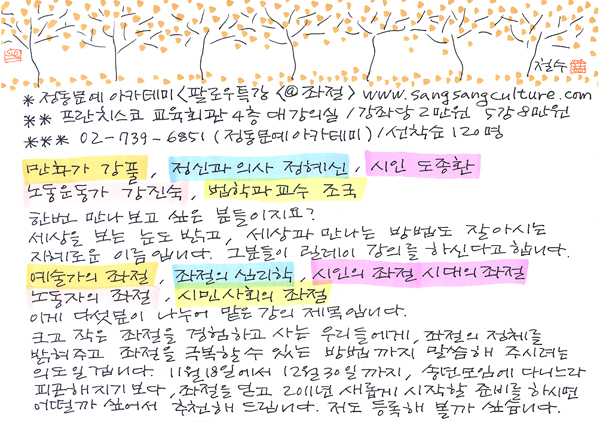 철수
* 정동문예 아카데미 <팔로우특강 <@좌절> www.sangsangculture.com
** 프란치스코 교육회관 4층 대강의실 / 강좌당 2만원 5강 8만원
*** 02-739-6851 (정동문예아카데미) / 선착순 120명
만화가 강풀, 정신과의사 정혜신, 시인 도종환
노동운동가 강진숙, 법학과교수 조국
한번 만나보고 싶은 분들이지요?
세상을 보는 눈도 밝고, 세상과 만나는 방법도 잘아시는
지혜로운 이름입니다. 그분들이 릴레이 강의를 하신다고 합니다.
예술가의 좌절, 좌절의 심리학, 시인의 좌절 시대의 좌절
노동자의 좌절, 시민사회의 좌절
이게 다섯분이 나누어 맡은 강의 제목입니다.
크고 작은 좌절을 경험하고 사는 우리들에게, 좌절의 정체를
밝혀주고 좌절을 극복할 수 있는 방법까지 말씀해 주시려는
의도일겁니다. 11월18일에서 12월30일까지, 송년모임에 다니느라
피곤해지기보다, 좌절을 딛고 2011년 새롭게 시작할 준비를 하시면
어떨까 싶어서 추천해 드립니다. 저도 등록해 볼까 싶습니다.